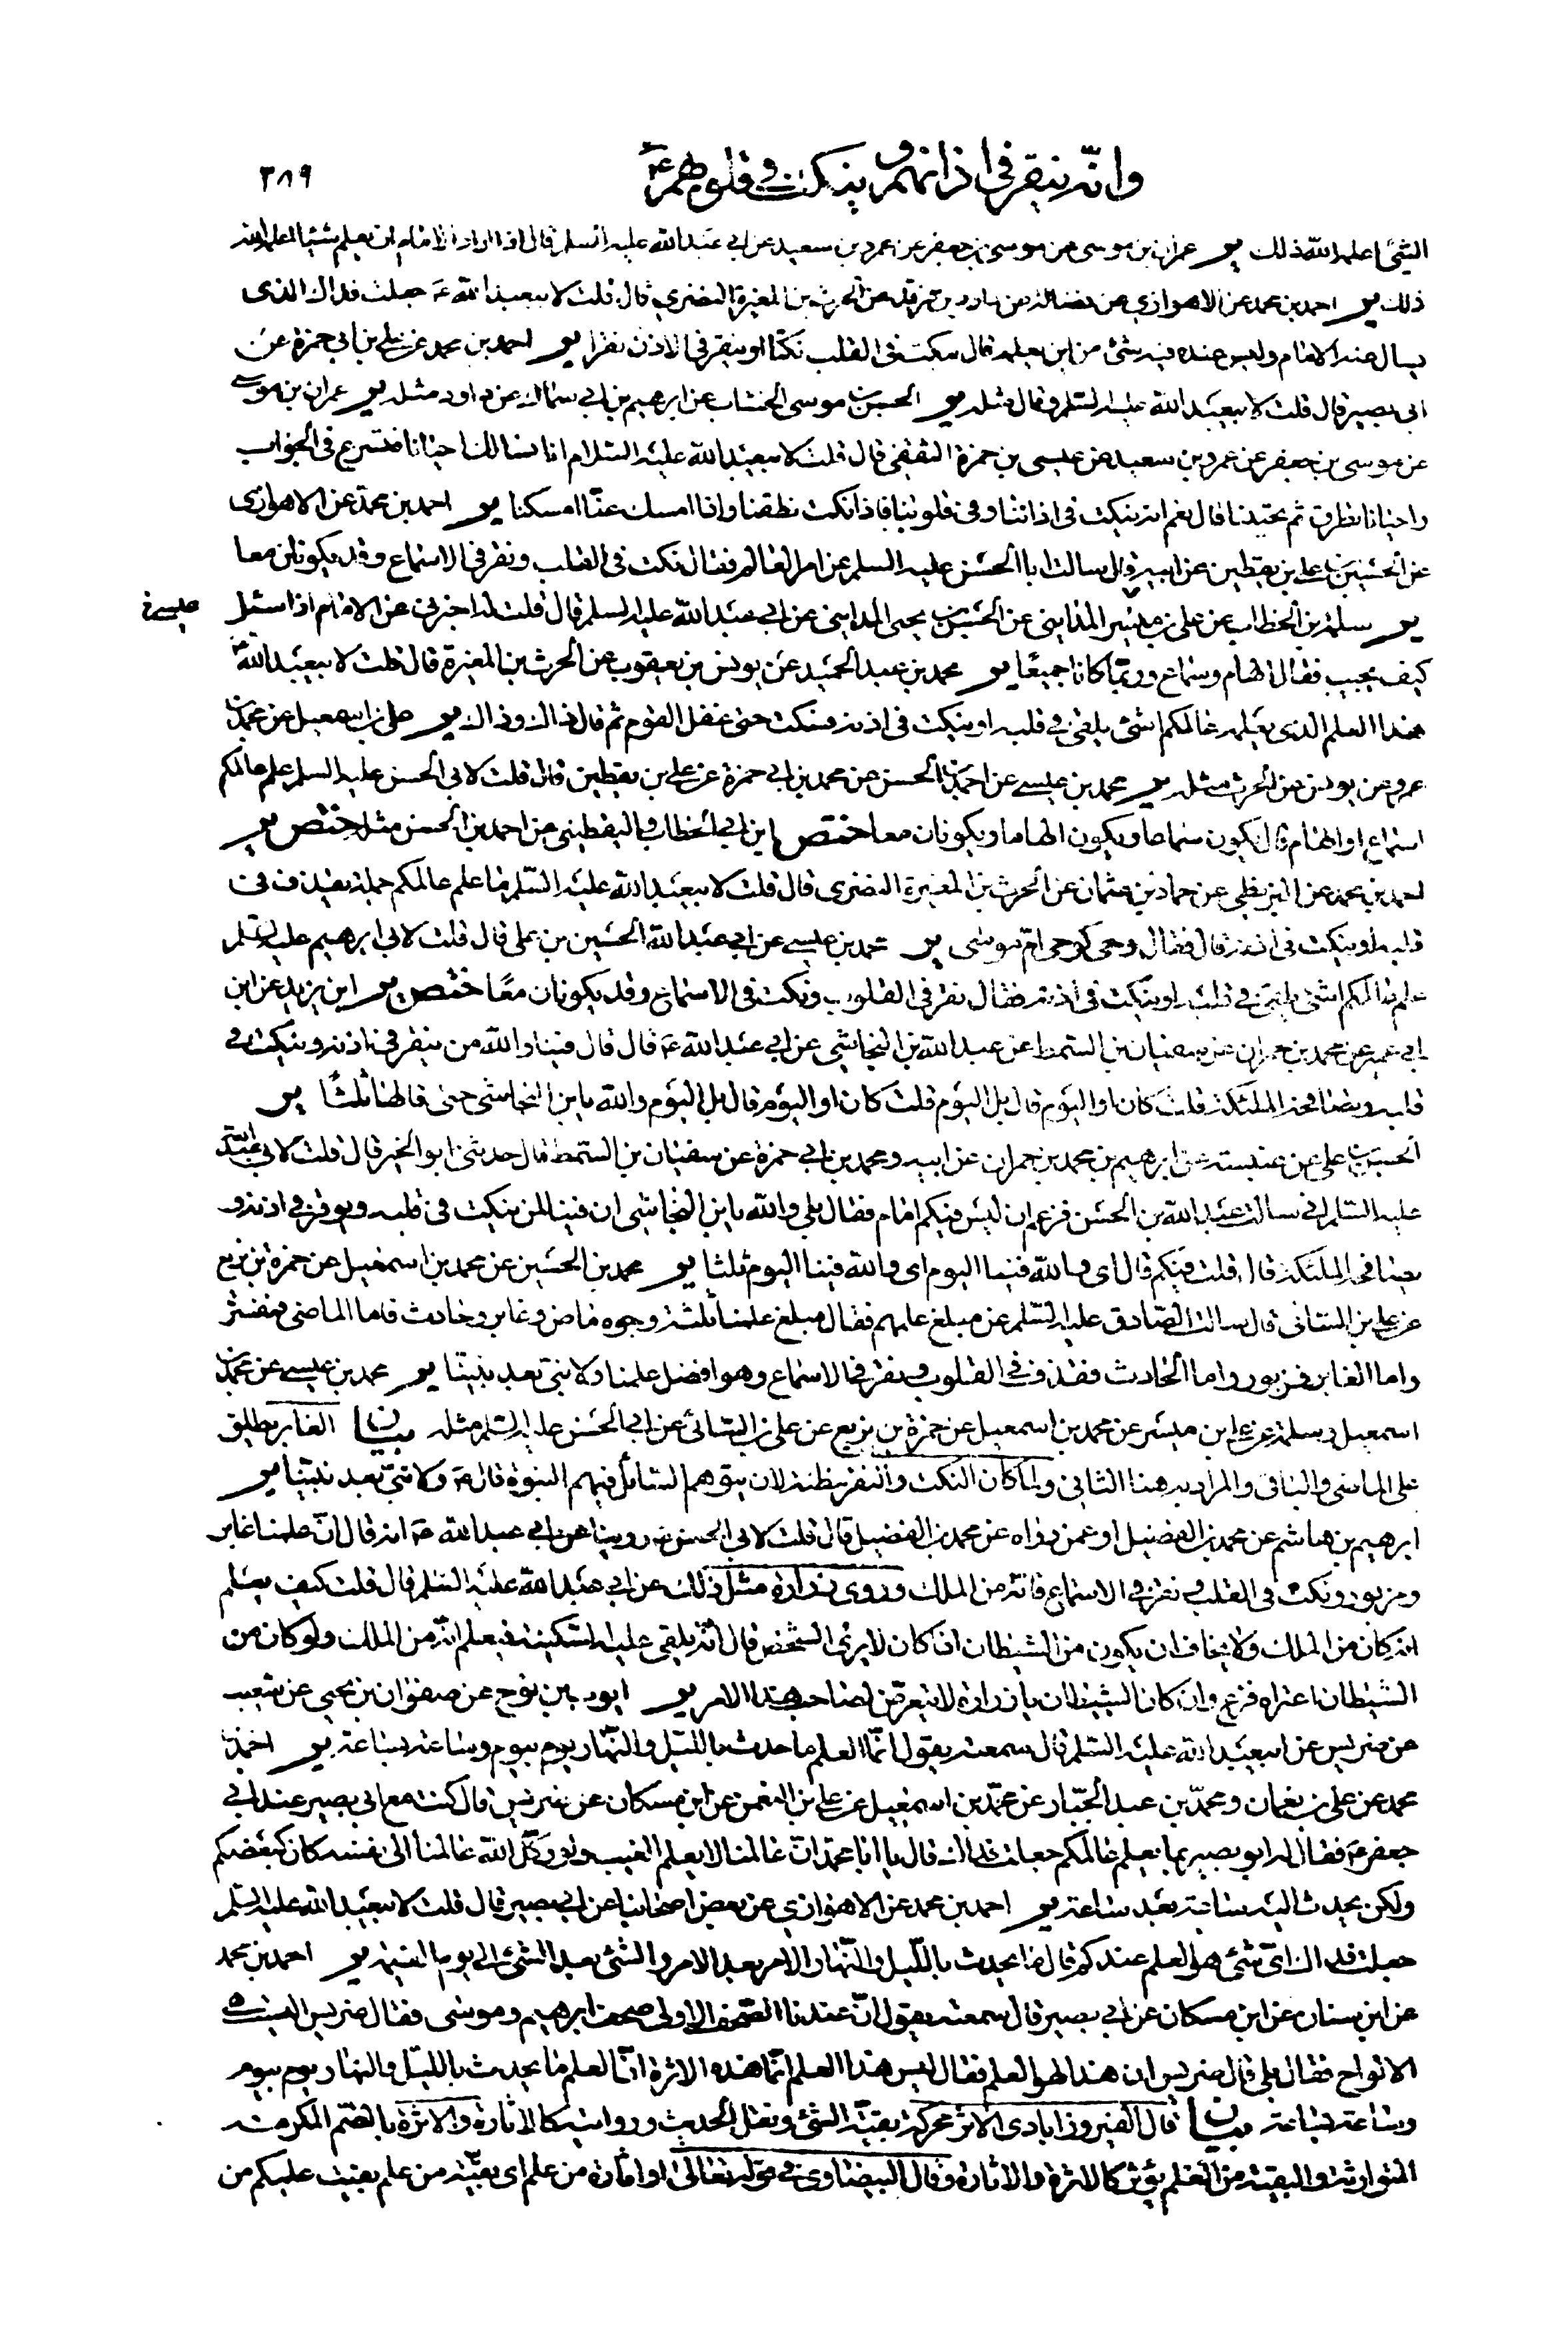 وانّه ينقر فى اذانهم و ينكت فى قلوبهم ع
٣٨٩
الشئ اعلمه الله ذلك ير عمران بن موسى عن موسى بن جعفر عن عمرو بن سعيد عن ابى عبد الله عليه السلم قال اذا اراد الامام ان يعلم شيئا اعلمه الله
ذلك ير احمد بن محمد عن الاهوازى عن فضالة عن داود بن فرقد عن الحرث بن المغيرة النضرى قال قلت لابيعبد الله ع جعلت فداك الذى
يسال عنه الامام وليس عنده فيه شئ من اين يعلمه قال ينكت فى القلب نكتا او ينقر فى الاذن نقرا ير احمد بن محمد عن على بن ابى حمزة عن
ابى بصير قال قلت لابيعبد الله عليه السلم وقال مثله ير الحسن بن موسى الخشاب عن ابرهيم بن ابى سماك عن داود مثله ير عمران بن موسى
عن موسى بن جعفر عن عمرو بن سعيد عن عيسى بن حمزة الثقفى قال قلت لابيعبد الله عليه السلام انا نسالك احيانا فتسرع فى الجواب
واحيانا تطرق ثم تجيبنا قال نعم انه ينكت فى اذاننا وفى قلوبنا فاذا نكت نطقنا واذا امسك عنّا امسكنا ير احمد بن محمد عن الاهوازى
عن الحسين بن على بن يقطين عن ابيه قال سالت ابا الحسن عليه السلم عن امر العالم فقال نكت فى القلب ونقر فى الاسماع وقد يكونان معا
ير سلمة بن الخطاب عن على بن ميسر المداينى عن الحسن بن يحيى المداينى عن ابى عبد الله عليه السلم قال قلت له اخبرنى عن الامام اذا سئل
عليسى خ
كيف يجيب فقال الهام وسماع وربما كانا جميعًا ير محمد بن عبد الحميد عن يونس بن يعقوب عن الحرث بن المغيرة قال قلت لابيعبد الله ع
هذا العلم الذى يعلمه عالمكم اشئ يلقى فى قلبه او ينكت فى اذنه فسكت حتى غفل القوم ثم قال ذاك وذاك ير على بن اسمعيل عن محمد بن
عمرو عن يونس عن الحرث مثله ير محمد بن عيسى عن احمد بن الحسن عن محمد بن ابى حمزة عن على بن يقطين قال قلت لابى الحسن عليه السلم علم عالمكم
استماع او الهام قال يكون سماعا ويكون الهاما ويكونان معا ختص ابن ابى الخطاب واليقطينى عن احمد بن الحسن مثله ختص ير
احمد بن محمد عن البزنطى عن حماد بن عثمان عن الحرث بن المغيرة النضرى قال قلت لابيعبد الله عليه السّلم ما علم عالمكم جملة يقذف فى
قلبه او ينكت فى اذنه قال فقال وحى كوحى امّ موسى ير محمد بن عيسى عن ابى عبد الله الحسين بن على قال قلت لابى ابرهيم عليه السلم
علم عالمكم اشئ يلقى فى قلبه او ينكت فى اذنه فقال نقر فى القلوب ونكت فى الاسماع وقد يكونان معًا ختص ير ابن يزيد عن ابن
ابى عمير عن محمد بن حمران عن سفيان بن السمط عن عبد الله بن النجاشى عن ابى عبد الله ع قال قال فينا والله من ينقر فى اذنه وينكت فى
قلبه وتصافحه الملئكة قلت كان او اليوم قال بل اليوم قلت كان او اليوم قال بل اليوم والله يابن النجاشى حتى قالها ثلثًا ير
الحسن بن على عن عنبسة عن ابرهيم بن محمد بن حمران عن ابيه ومحمد بن ابى حمزة عن سفيان بن السمط قال حدثنى ابو الخير قال قلت لابى عبد الله
عليه السّلم انى سالت عبد الله بن الحسن فزعم ان ليس فيكم امام فقال بلى والله يابن النجاشى ان فينا لمن ينكت فى قلبه ويوقر فى اذنه و
يصافحه الملئكة قال قلت فيكم قال اى والله فينا اليوم اى والله فينا اليوم ثلثا ير محمد بن الحسين عن محمد بن اسمعيل عن حمزة بن بزيع
عن على بن السائى قال سالت الصادق عليه السّلم عن مبلغ علمهم فقال مبلغ علمنا ثلثة وجوه ماض وغابر وحادث فاما الماضى فمفسّر
واما الغابر فمزبور واما الحادث فقذف فى القلوب ونقر فى الاسماع وهو افضل علمنا ولا نبى بعد نبيّنا ير محمد بن عيسى عن محمد بن
اسمعيل وسلمة عن على بن ميسر عن محمد بن اسمعيل عن حمزة بن بزيع عن على بن السائى عن ابى الحسن عليه السلم مثله بيان الغابر يطلق
على الماضى والباقى والمراد به هنا الثانى ولما كان النكت والنقر مظنة لان يتوهم السائل فيهم النبوة قال ع ولا نبىّ بعد نبيّنا ير
ابرهيم بن هاشم عن محمد بن الفضيل او عمن رواه عن محمد بن الفضيل قال قلت لابى الحسن ع روينا عن ابى عبد الله ع انه قال انّ علمنا غابر
ومزبور ونكت فى القلب ونقر فى الاسماع فانه من الملك وروى زرارة مثل ذلك عن ابى عبد الله عليه السّلم قال قلت كيف يعلم
انه كان من الملك ولا يخاف ان يكون من الشيطان اذا كان لا يرى الشخص قال انّه يلقى عليه السّكينة فيعلم انّه من الملك ولو كان من
الشيطان اعتراه فزع وان كان الشيطان يا زرارة لا يتعرّض لصاحب هذا الامر ير ايوب بن نوح عن صفوان بن يحيى عن شعيب
عن ضريس عن ابيعبد الله عليه السّلم قال سمعته يقول انّما العلم ما حدث بالليل والنّهار يوم بيوم وساعة بساعة ير احمد بن
محمد عن على بن نعمان ومحمّد بن عبد الجبّار عن محمّد بن اسمعيل عن على بن النعمن عن ابن مسكان عن ضريس قال كنت مع ابى بصير عند ابى
جعفر ع فقال له ابو بصير بما يعلم عالمكم جعلت فداك قال يا ابا محمّد انّ عالمنا لا يعلم الغيب ولو وكّل الله عالمنا الى نفسه كان كبعضكم
ولكن يحدث اليه ساعة بعد ساعة ير احمد بن محمد عن الاهوازى عن بعض اصحابنا عن ابى بصير قال قلت لابيعبد الله عليه السلم
جعلت فداك اىّ شئ هو العلم عندكم قال ما يحدث بالليل والنّهار الامر بعد الامر والشئ بعد الشئ الى يوم القيمة ير احمد بن محمد
عن ابن سنان عن ابن مسكان عن ابى بصير قال سمعته يقول انّ عندنا الصّحف الاولى صحف ابرهيم وموسى فقال ضريس اليست
الالواح فقال بلى قال ضريس ان هذا لهو العلم فقال ليس هذا العلم انّما هذه الاثرة انّ العلم ما يحدث بالليل والنهار يوم بيوم
وساعة بساعة بيان قال الفيروزابادى الاثر محركة بقيّة الشئ ونقل الحديث وروايته كالاثارة والاثرة بالضم المكرمة
المتوارثة والبقية من العلم يؤثر كالاثرة والاثارة وقال البيضاوى فى قوله تعالى او اثارة من علم اى بقيّة من علم بقيت عليكم من